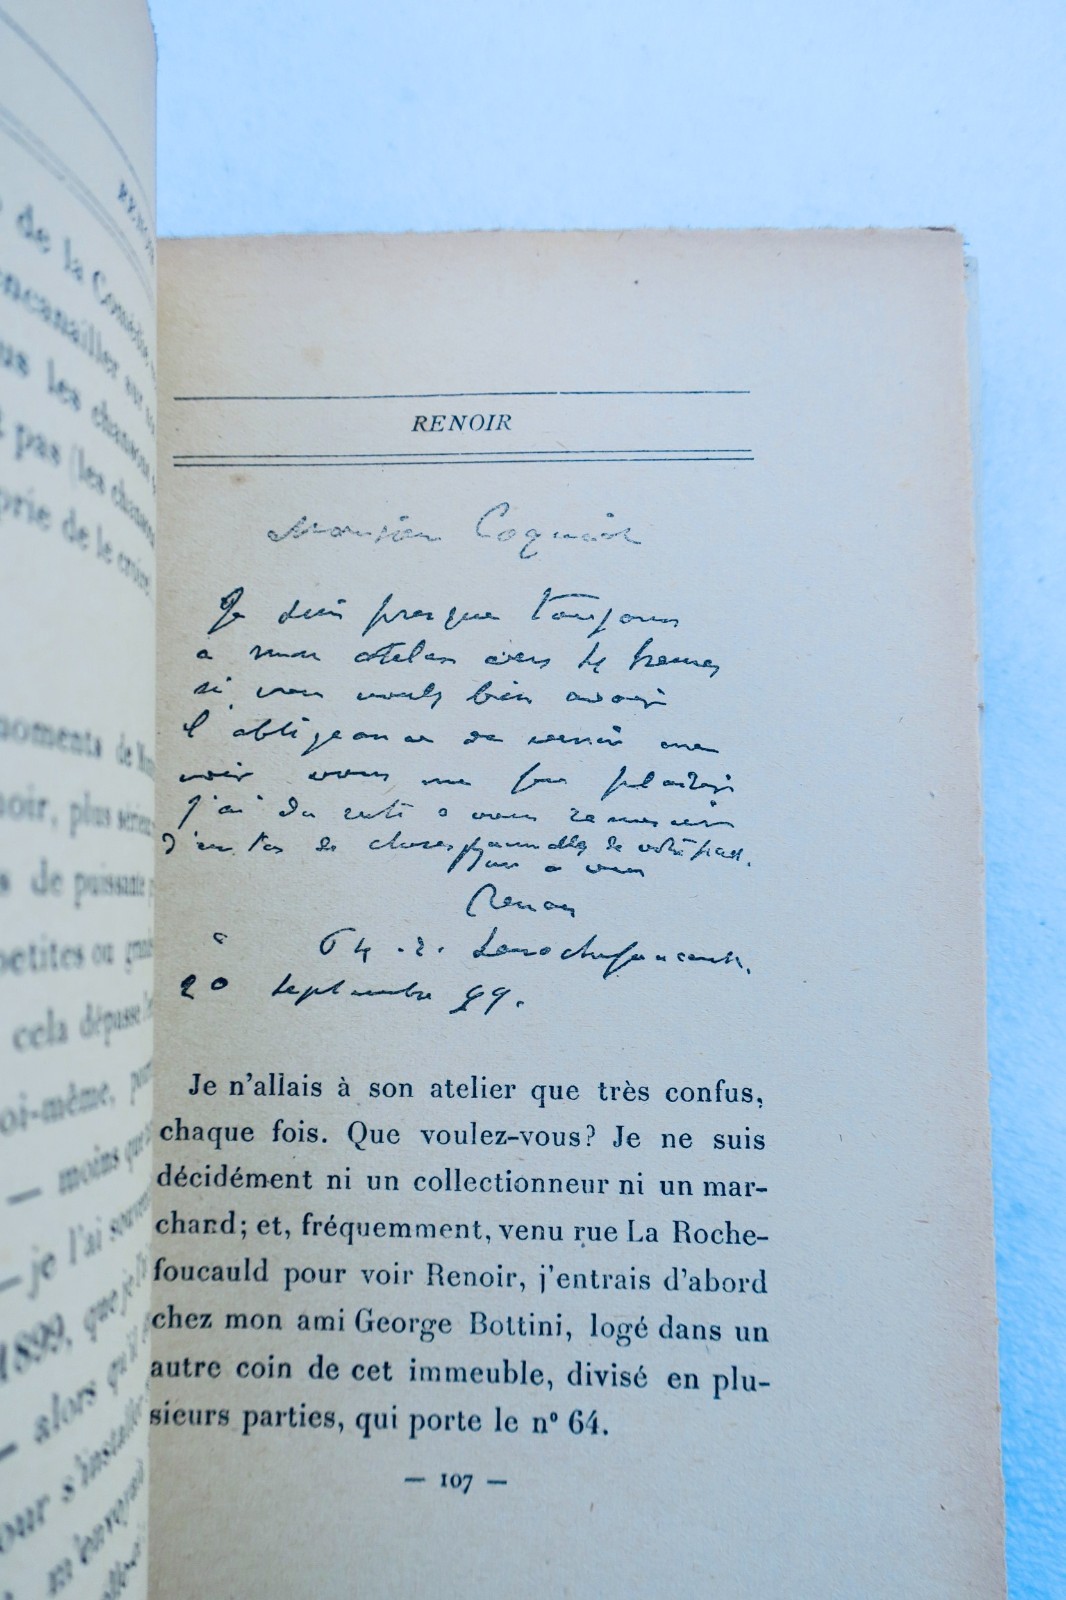 RENOIR
de la Comédie,
encanailler sur
les chansons
pas (les chansons
de le croire.
moments de
plus
de puissante
petites ou
cela dépasse
moins que
je l'ai
1899, que je
alors qu'il
pour s'installer
m'envoyait
RENOIR
Monsieur Coquiot
Je suis presque toujours
a mon atelier vers 4 heures
si vous voulez bien avoir
l'obligeance de venir me
voir vous me fer plaisir
j'ai du reste a vous remercier
d'un tas de choses
a vous
Renoir
64 . r. Larochefoucault.
20 septembre 99.
Je n'allais à son atelier que très confus,
chaque fois. Que voulez-vous? Je ne suis
décidément ni un collectionneur ni un mar-
chand; et, fréquemment, venu rue La Roche-
foucauld pour voir Renoir, j'entrais d'abord
chez mon ami George Bottini, logé dans un
autre coin de cet immeuble, divisé en plu-
sieurs parties, qui porte le n° 64.
— 107 —